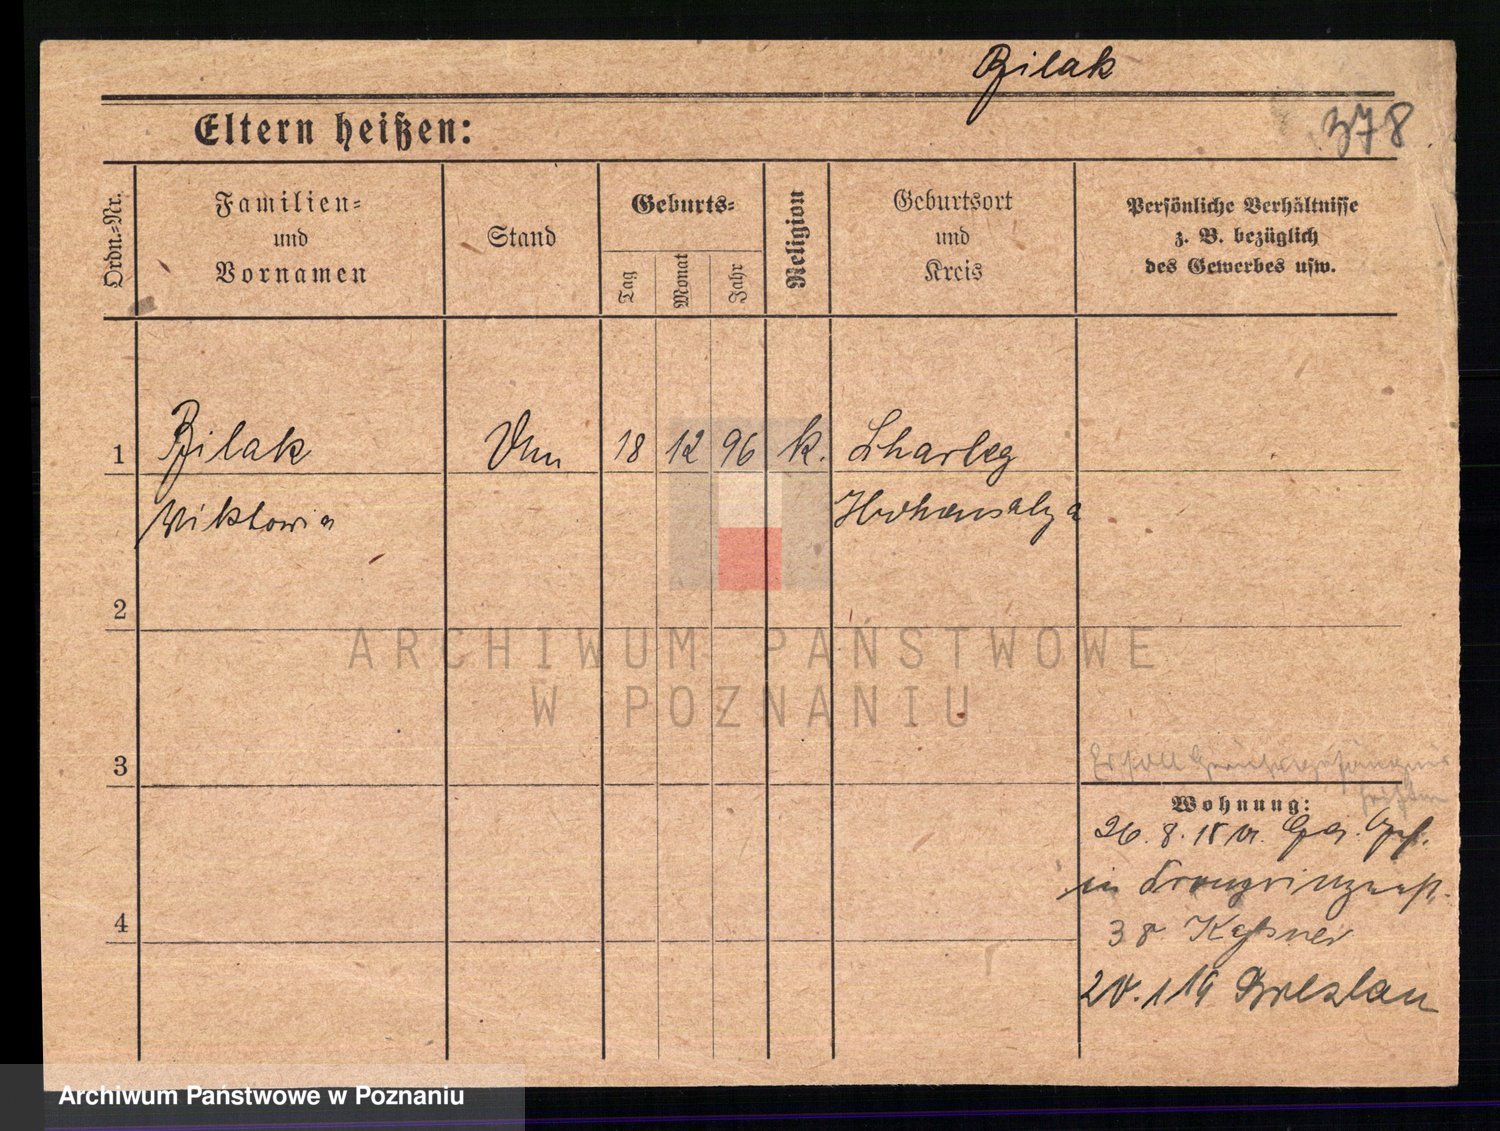 Bilak
378
Eltern heißen:
Ordn.-Nr.
Familien-
und
Vornamen
Stand
Geburts-
Tag
Monat
Jahr
Religion
Geburtsort
und
Kreis
Persönliche Verhältnisse
z. B. bezüglich
des Gewerbes usw.
1 Bilak 18 12 96 k. Lharleg
Wiktoria Hohensalza
2
3
Wohnung:
26. 8. 18
in Kronprinzenst.
38 Kessner
4
20. 1 19 Breslau
ARCHIWUM PAŃSTWOWE
W POZNANIU
Archiwum Państwowe w Poznaniu